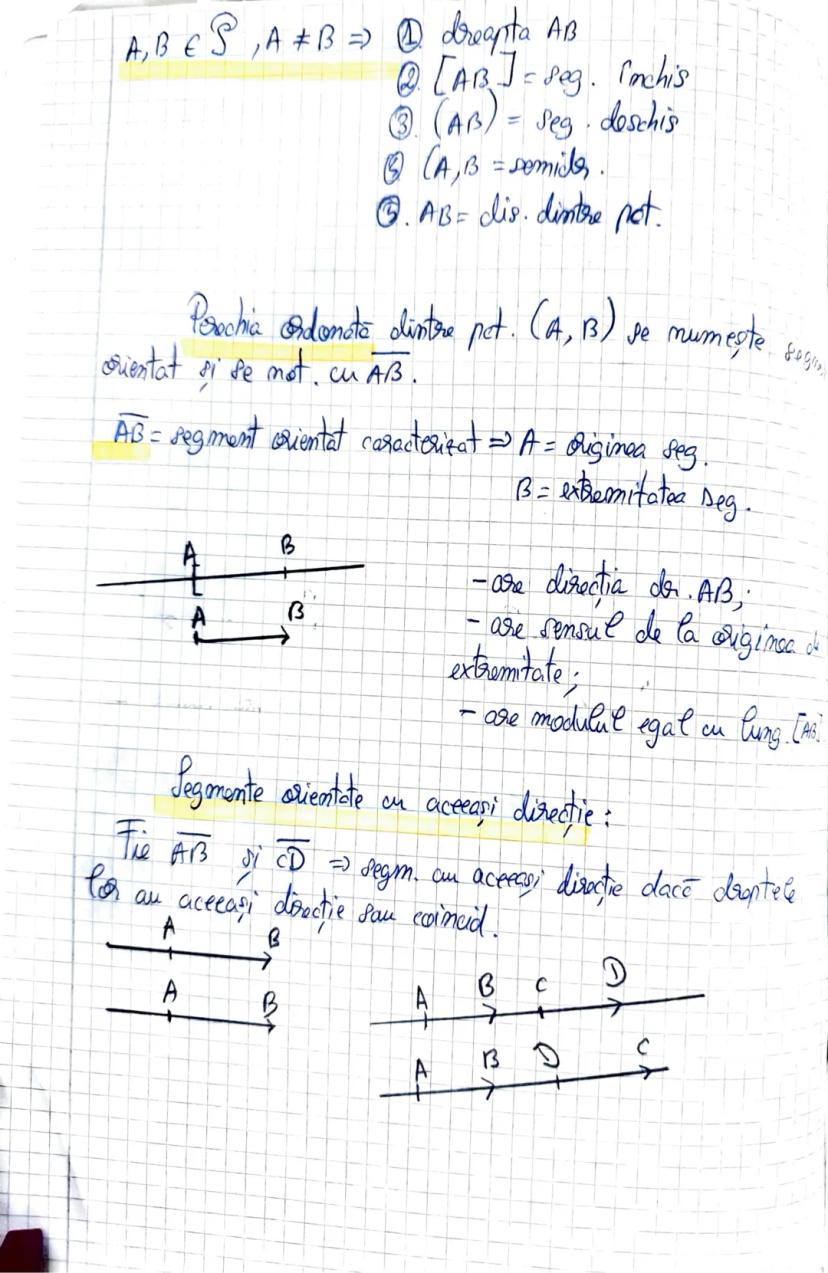 A, B ∈ 𝒫, A ≠ B ⇒ ① dreapta AB
② [AB] = seg. închis
③ (AB) = seg. deschis
④ (A,B = semidr.
⑤. AB = dis. dintre pct.
Perechia ordonată dintre pct. (A, B) se numește segm
orientat și se not. cu \overline{AB}.
\overline{AB} = segment orientat caracterizat ⇒ A = originea seg.
B = extremitatea seg.
A B
A B
- are direcția dr. AB;
- are sensul de la originea
extremitate;
- are modulul egal cu lung. [AB]
Segmente orientate cu aceeași direcție:
Fie \overline{AB} și \overline{CD} ⇒ segm. au aceeași direcție dacă dreptele
lor au aceeași direcție sau coincid.
A B
A B
A B C D
A B D C